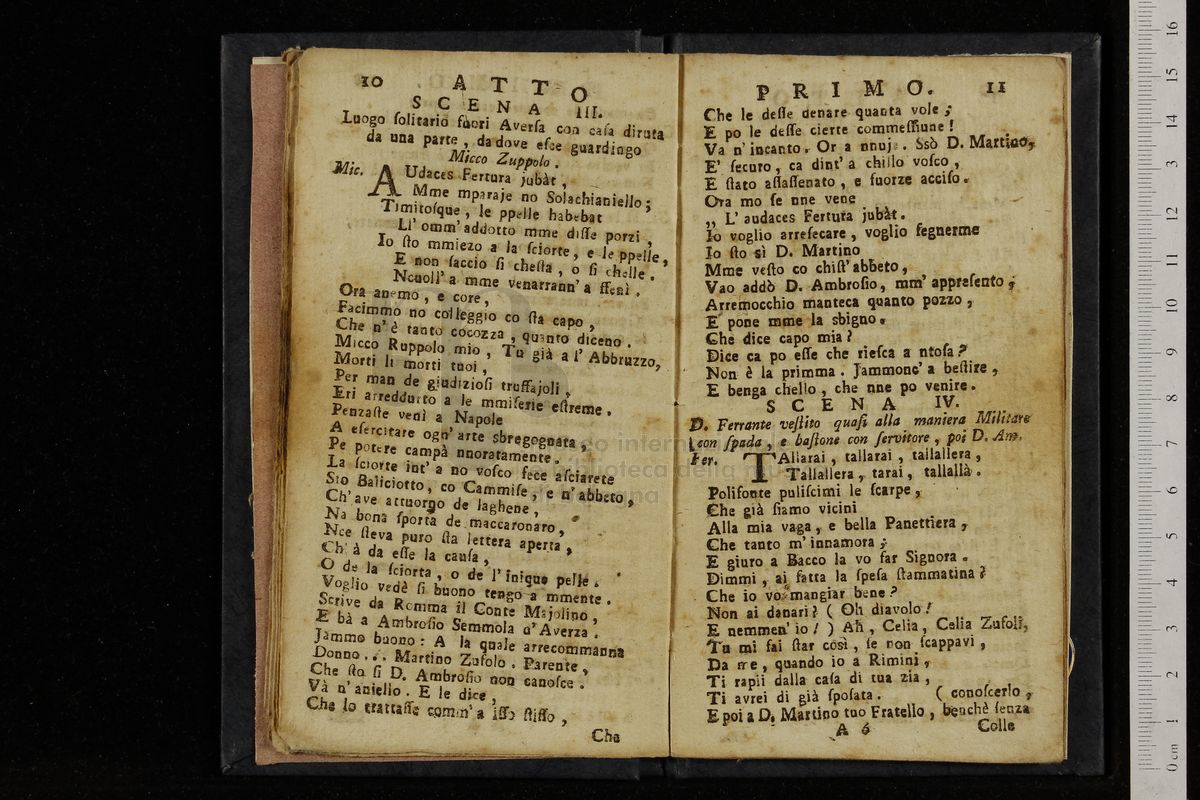 10 A T T O
S C E N A III.
Luogo ſolitario fuori Averſa con caſa diruta
da una parte, da dove eſce guardingo
Micco Zuppolo.
Mic. AUdaces Fertura jubàt,
Mme mparaje no Solachianiello;
Timitoſque, le ppelle habebat
Li' omm' addotto mme diſſe porzì,
Io ſto mmiezo a la ſciorte, e le ppelle,
E non ſaccio ſi cheſta, o ſi chelle.
Ncuoll' a mme venarrann' a ffenì.
Ora anemo, e core,
Facimmo no colleggio co ſta capo,
Che n' è tanto cocozza, quanto diceno.
Micco Ruppolo mio, Tu già a l' Abbruzzo,
Morti li morti tuoi,
Per man de giudizioſi truffajoli,
Eri arredduto a le mmiſerie eſtreme.
Penzaſte venì a Napole
A eſercitare ogn' arte sbregognata,
Pe potere campà nnoratamente.
La ſciorte int' a no voſco fece aſciarete
Sto Baliciotto, co Cammiſe, e n' abbeto,
Ch' ave attuorgo de laghene,
Na bona ſporta de maccaronaro,
Nce ſteva puro ſta lettera aperta,
Ch' à da eſſe la cauſa,
O de la ſciorta, o de l' inique pelle.
Voglio vedè ſi buono tengo a mmente.
Scrive da Romma il Conte Majolino,
E bà a Ambroſio Semmola d' Averza.
Jammo buono: A la quale arrecommanna
Donno... Martino Zufolo. Parente,
Che ſta ſi D. Ambroſio non canoſce.
Và n' aniello. E le dice,
Che lo trattaſſe comm' a iſſo ſtiſſo,
Che
P R I M O. 11
Che le deſſe denare quanta vole;
E po le deſſe cierte commeſſiune!
Va n' incanto. Or a nnuje. Ssò D. Martino,
E' ſecuro, ca dint' a chillo voſco,
E ſtato aſſaſſenato, e fuorze acciſo.
Ora mo ſe nne vene
„ L' audaces Fertura jubàt.
Io voglio arreſecare, voglio fegnerme
Io ſto sì D. Martino
Mme veſto co chiſt' abbeto,
Vao addò D. Ambroſio, mm' appreſento,
Arremocchio manteca quanto pozzo,
E pone mme la sbigno.
Che dice capo mia?
Dice ca po eſſe che rieſca a ntoſa?
Non è la primma. Jammonc' a beſtire,
E benga chello, che nne po venire.
S C E N A IV.
D. Ferrante veſtito quaſi alla maniera Militare
con ſpada, e baſtone con ſervitore, poi D. Am.
Fer. TAllarai, tallarai, tallallera,
Tallallera, tarai, tallallà.
Polifonte puliſcimi le ſcarpe,
Che già ſiamo vicini
Alla mia vaga, e bella Panettiera,
Che tanto m' innamora;
E giuro a Bacco la vo far Signora.
Dimmi, ai fatta la ſpeſa ſtammatina?
Che io vo mangiar bene?
Non ai danari? ( Oh diavolo!
E nemmen' io! ) Ah, Celia, Celia Zufoli,
Tu mi fai ſtar così, ſe non ſcappavi,
Da me, quando io a Rimini,
Ti rapii dalla caſa di tua zia,
Ti avrei di già ſpoſata. ( conoſcerlo,
E poi a D. Martino tuo Fratello, benchè ſenza
A 6 Colle